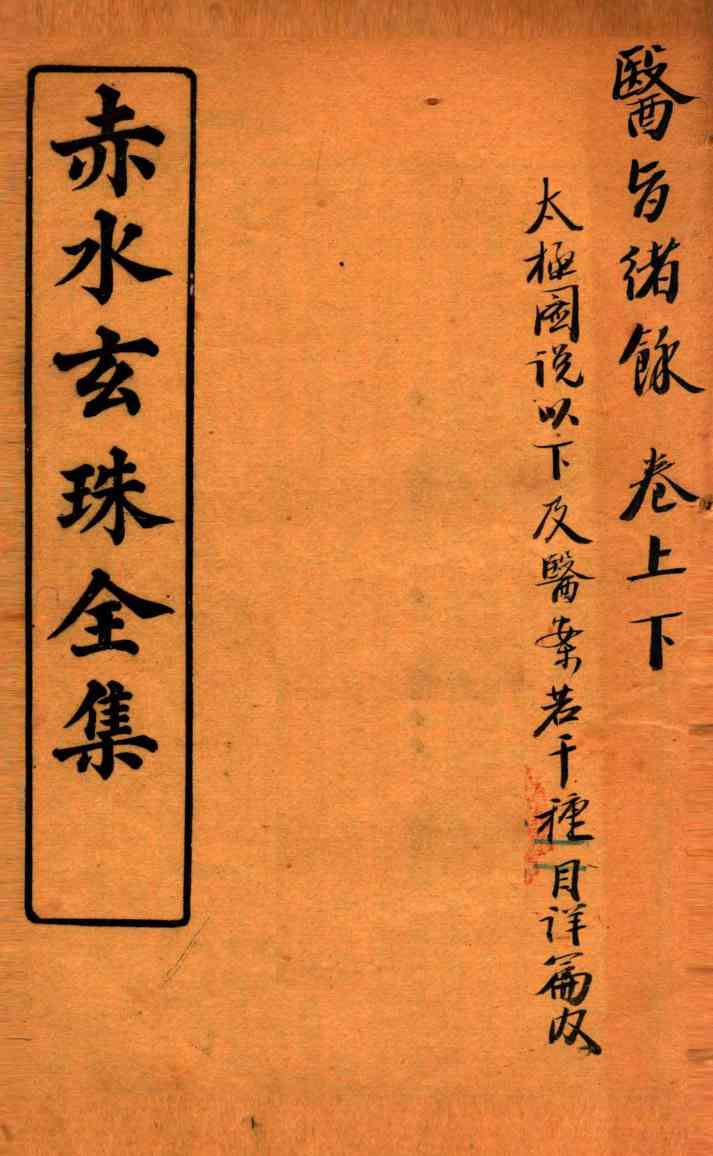 醫旨緒餘 卷上下
太極圖说以下及醫案若干種目详篇内
赤水玄珠全集